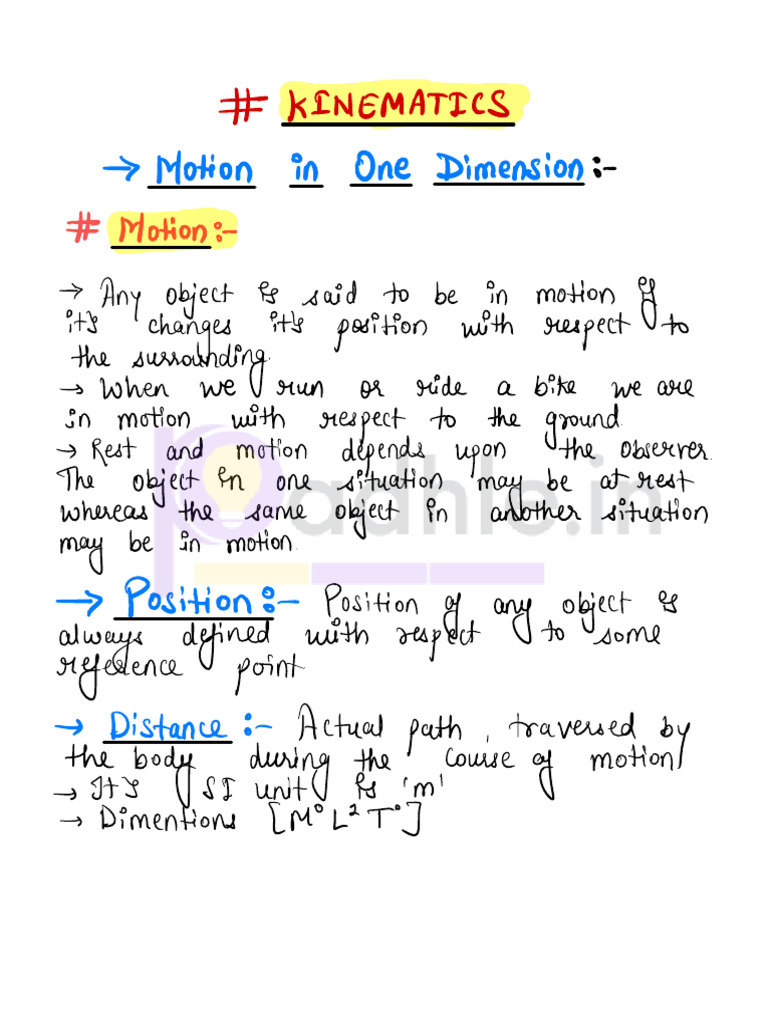 # KINEMATICS
→ Motion in One Dimension :-
# Motion :-
→ Any object is said to be in motion if
it's changes it's position with respect to
the surrounding.
→ When we run or ride a bike we are
in motion with respect to the ground.
→ Rest and motion depends upon the observer.
The object in one situation may be at rest
whereas the same object in another situation
may be in motion.
padhle.in
→ Position :- Position of any object is
always defined with respect to some
reference point
→ Distance :- Actual path, traversed by
the body during the course of motion
→ It's SI unit is 'm'
→ Dimentions [M⁰L²T⁰]